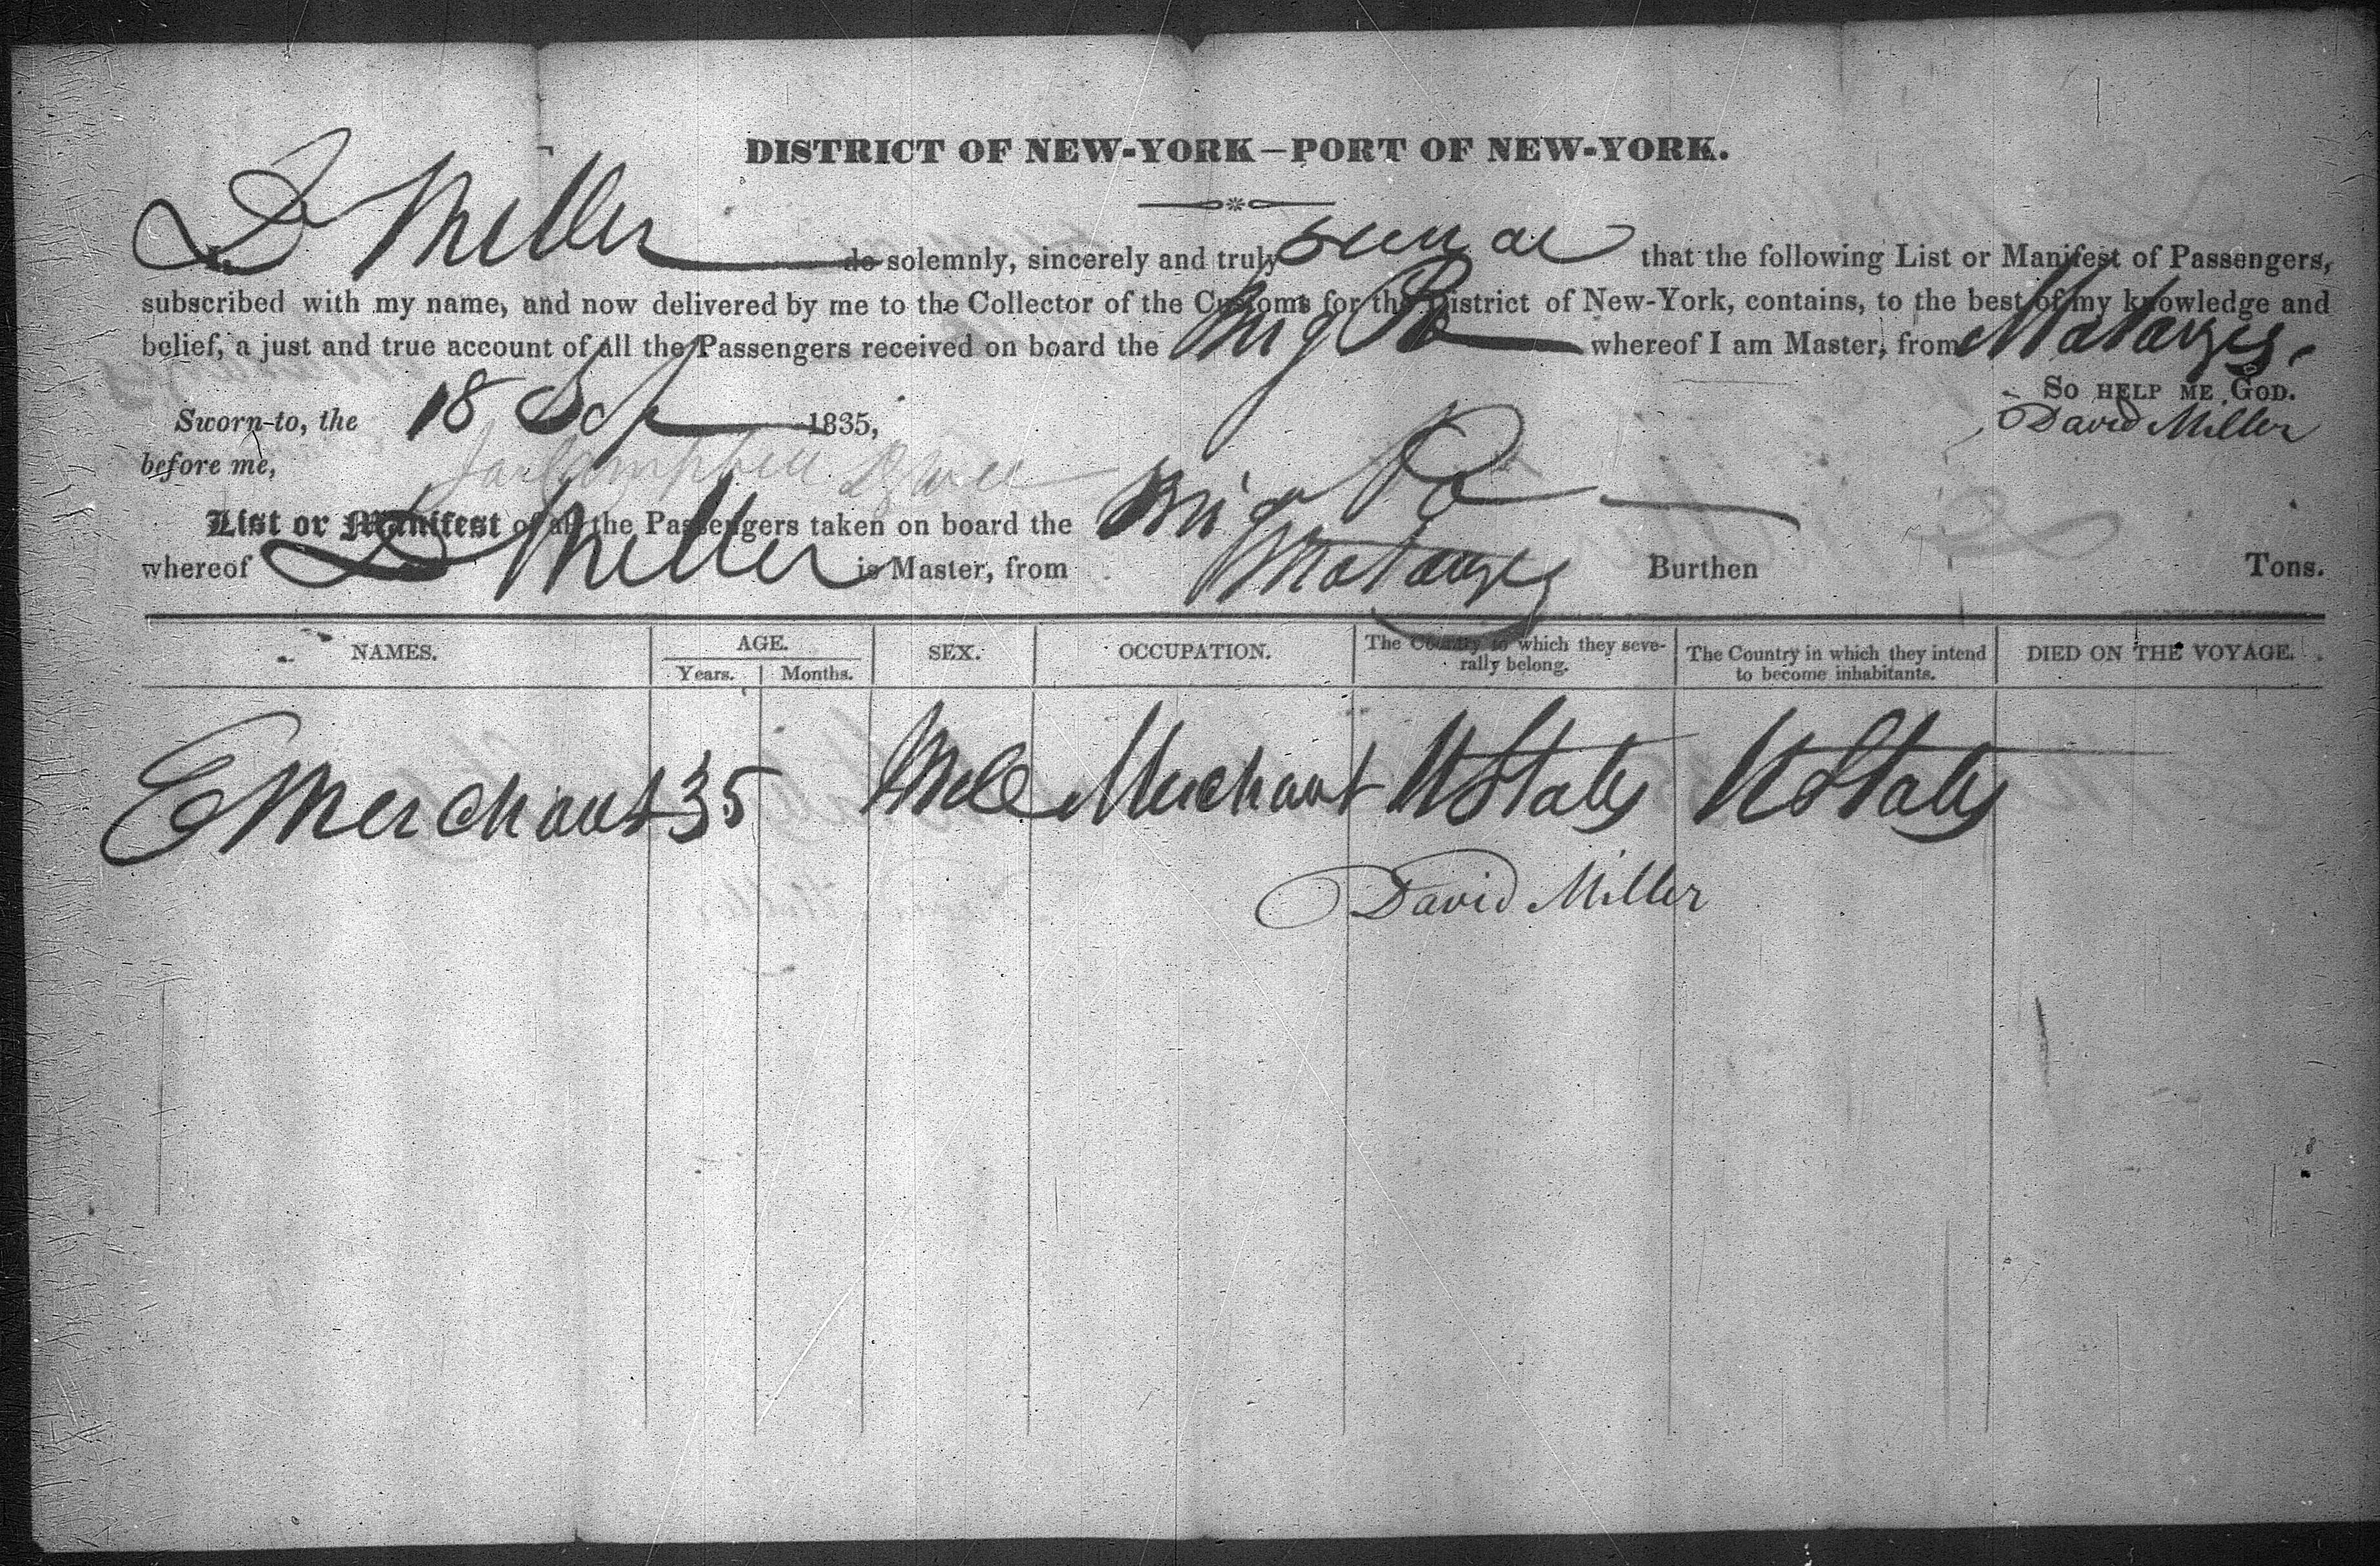 DISTRICT OF NEW-YORK—PORT OF NEW-YORK.
D Miller do solemnly, sincerely and truly swear that the following List or Manifest of Passengers,
subscribed with my name, and now delivered by me to the Collector of the Customs for the District of New-York, contains, to the best of my knowledge and
belief, a just and true account of all the Passengers received on board the Brig Po whereof I am Master, from Matanzas.
So help me God.
Sworn to, the 18 Sep 1835,
David Miller
before me,
List or Manifest of all the Passengers taken on board the Brig Po
whereof D Miller is Master, from Matanzas Burthen Tons.
NAMES. AGE. SEX. OCCUPATION. The Country to which they seve- The Country in which they intend DIED ON THE VOYAGE.
Years. Months. rally belong. to become inhabitants.
E Merchant 35 Male Merchant U States U States
David Miller